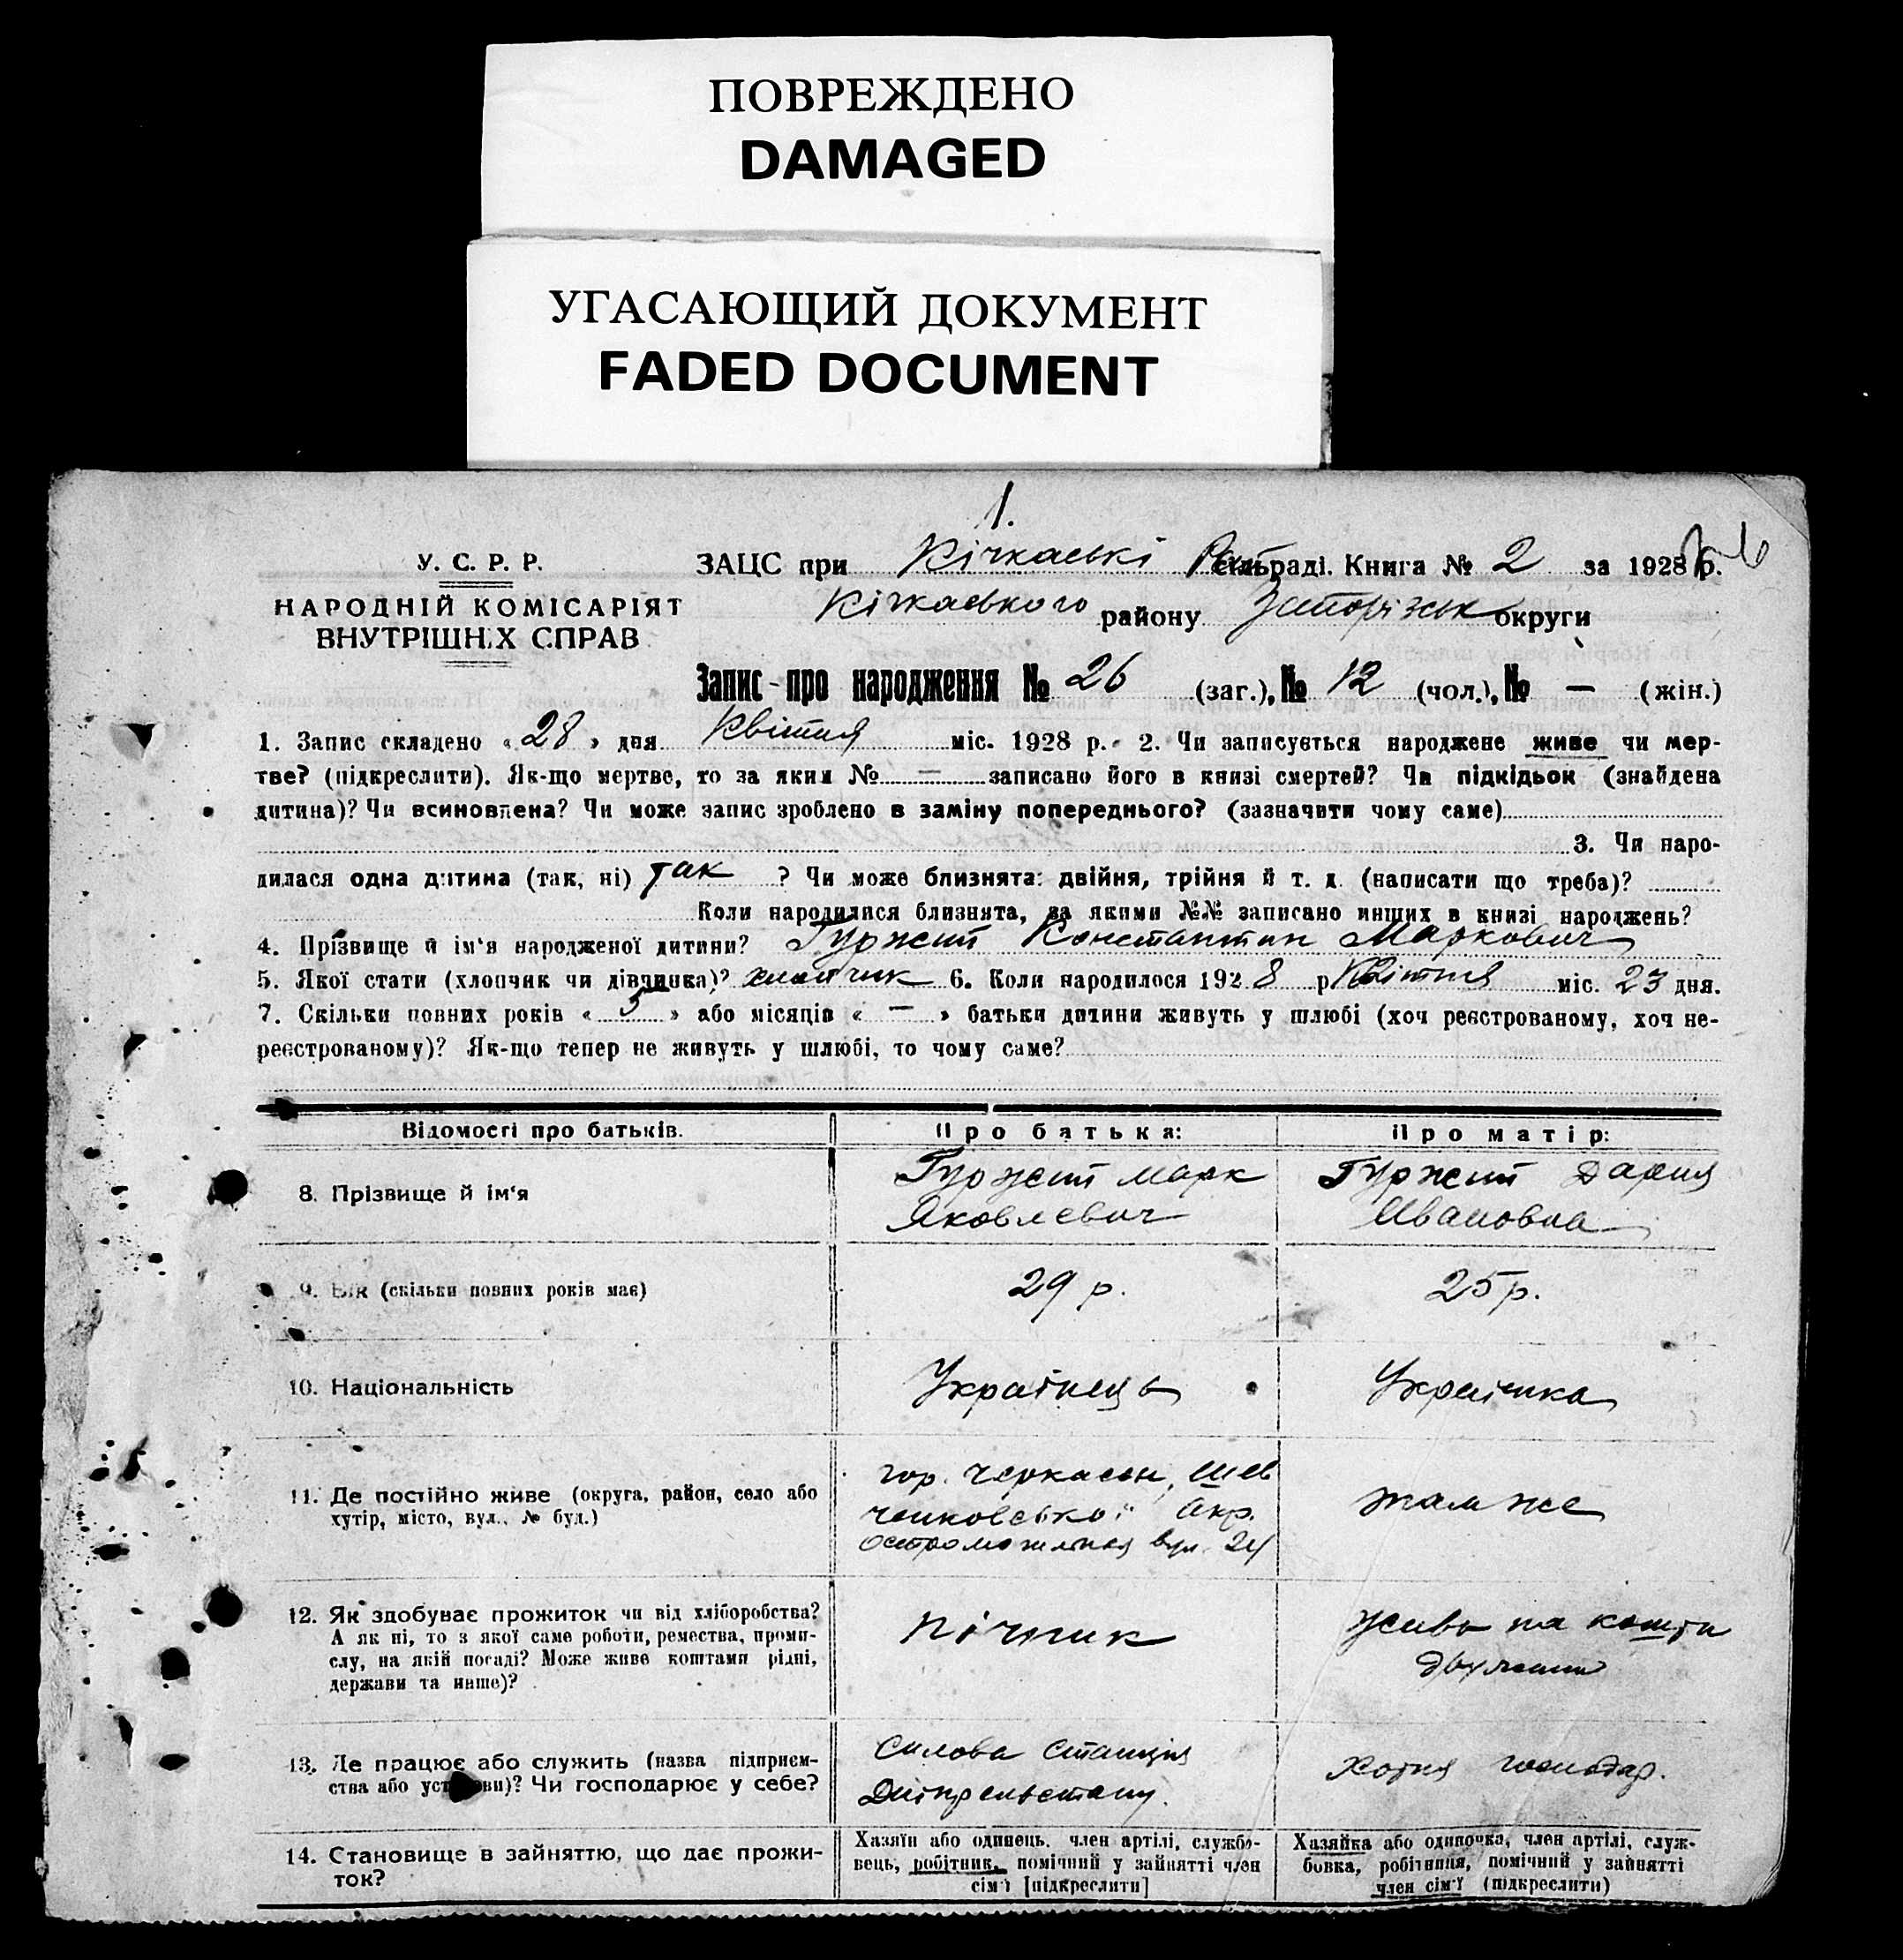 ПОВРЕЖДЕНО
DAMAGED
УГАСАЮЩИЙ ДОКУМЕНТ
FADED DOCUMENT
1.
У. С. Р. Р.
НАРОДНІЙ КОМІСАРІЯТ
ВНУТРІШНІХ СПРАВ
ЗАЦС при Кічкаські Рай сільраді. Книга № 2 за 1928 р.
Кічкаського району Запорізьк округи
Запис про народження № 26 (заг.), № 12 (чол.), № — (жін.)
1. Запис складено «28» дня Квітня міс. 1928 р. 2. Чи записується народжене живе чи мер-
тве? (підкреслити). Як-що мертве, то за яким № — записано його в книзі смертей? Чи підкідьок (знайдена
дитина)? Чи всиновлена? Чи може запис зроблено в заміну попереднього? (зазначити чому саме)
3. Чи наро-
дилася одна дитина (так, ні) так ? Чи може близнята: двійня, трійня й т. д. (написати що треба)?
Коли народилися близнята, за якими №№ записано инших в книзі народжень?
4. Прізвище й ім'я народженої дитини? Гуржий Константин Маркович
5. Якої стати (хлопчик чи дівчинка)? хлопчик 6. Коли народилося 1928 р Квітня міс. 23 дня.
7. Скільки повних років « 5 » або місяців « — » батьки дитини живуть у шлюбі (хоч реєстрованому, хоч не-
реєстрованому)? Як-що тепер не живуть у шлюбі, то чому саме?
Відомості про батьків. Про батька: Про матір:
8. Прізвище й ім'я
Гуржий Марк
Яковлевич
Гуржий Дария
Ивановна
9. Вік (скільки повних років має) 29 р. 25 р.
10. Національність Українець Українка
11. Де постійно живе (округа, район, село або
хутір, місто, вул., № буд.)
гор. Черкасы, Шев
ченковської Окр.
вул. 24
там же
12. Як здобуває прожиток чи від хліборобства?
А як ні, то з якої саме роботи, ремества, проми-
слу, на якій посаді? Може живе коштами рідні,
держави та инше)?
пічник
живе на кошти
13. Де працює або служить (назва підприєм-
ства або установи)? Чи господарює у себе?
Силова Станция
Дніпрельстану.
Хотня господар.
14. Становище в зайняттю, що дає прожи-
ток?
Хазяїн або одинець, член артілі, службо-
вець, робітник, помічний у зайнятті член
сім'ї [підкреслити]
Хазяйка або одиночка, член артілі, служ-
бовка, робітниця, помічний у зайнятті
член сім'ї (підкреслити)